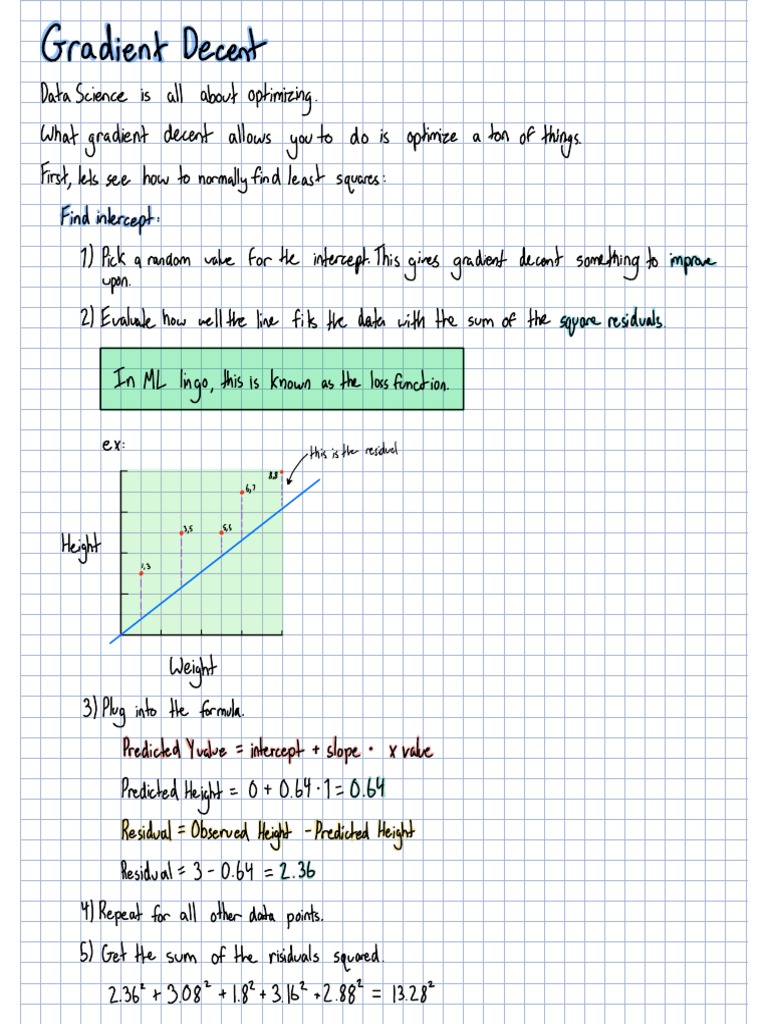 Gradient Decent
Data Science is all about optimizing.
What gradient decent allows you to do is optimize a ton of things.
First, lets see how to normally find least squares:
Find intercept:
1) Pick a random value for the intercept. This gives gradient decent something to improve
upon.
2) Evaluate how well the line fits the data with the sum of the square residuals.
In ML lingo, this is known as the loss function.
ex:
this is the residual
8,8
6,7
3,5
5,5
1,3
Height
Weight
3) Plug into the formula.
Predicted Y value = intercept + slope · x value
Predicted Height = 0 + 0.64 · 1 = 0.64
Residual = Observed Height - Predicted Height
Residual = 3 - 0.64 = 2.36
4) Repeat for all other data points.
5) Get the sum of the risiduals squared.
2.36² + 3.08² + 1.8² + 3.16² + 2.88² = 13.28²